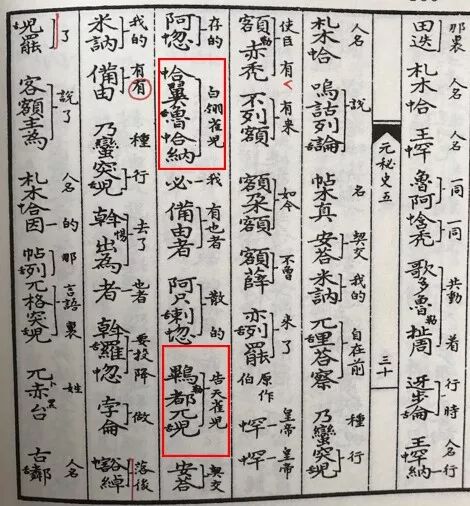 那裏 一同 一同 共動 着 行時 人名 行
田迭 札木恰 王罕 魯阿 恰禿 歌多魯勒 扯周 迓步論 王罕納
元秘史五 三十
人名 說 名 契交 我的 自在前 種 行
札木恰 嗚詁列論 帖木真 安荅 米訥 兀里荅察 乃蠻突兒
使臣 有 有來 如今 不曾 來了 原作伯 皇帝 皇帝
額勒赤禿 不列額 額朵額 額薛 亦列罷 罕 罕
存的 白翎雀兒 我 有也者 散的 告天雀兒 契交
阿惚 恰翼嚕恰納 必 備由者 阿只剌惚 鷎都兀兒 安荅
我的 有 有 種 行 去了 也者 要投降 做 落後
米訥 備由 乃蠻突兒 斡惕出為者 斡羅惚 孛侖 豁綽
了 說了 人名 的 那 言語裏 姓 人名
兒罷 客額主為 札木恰因 帖列 兀格突兒 兀卜赤黑台 古鄰